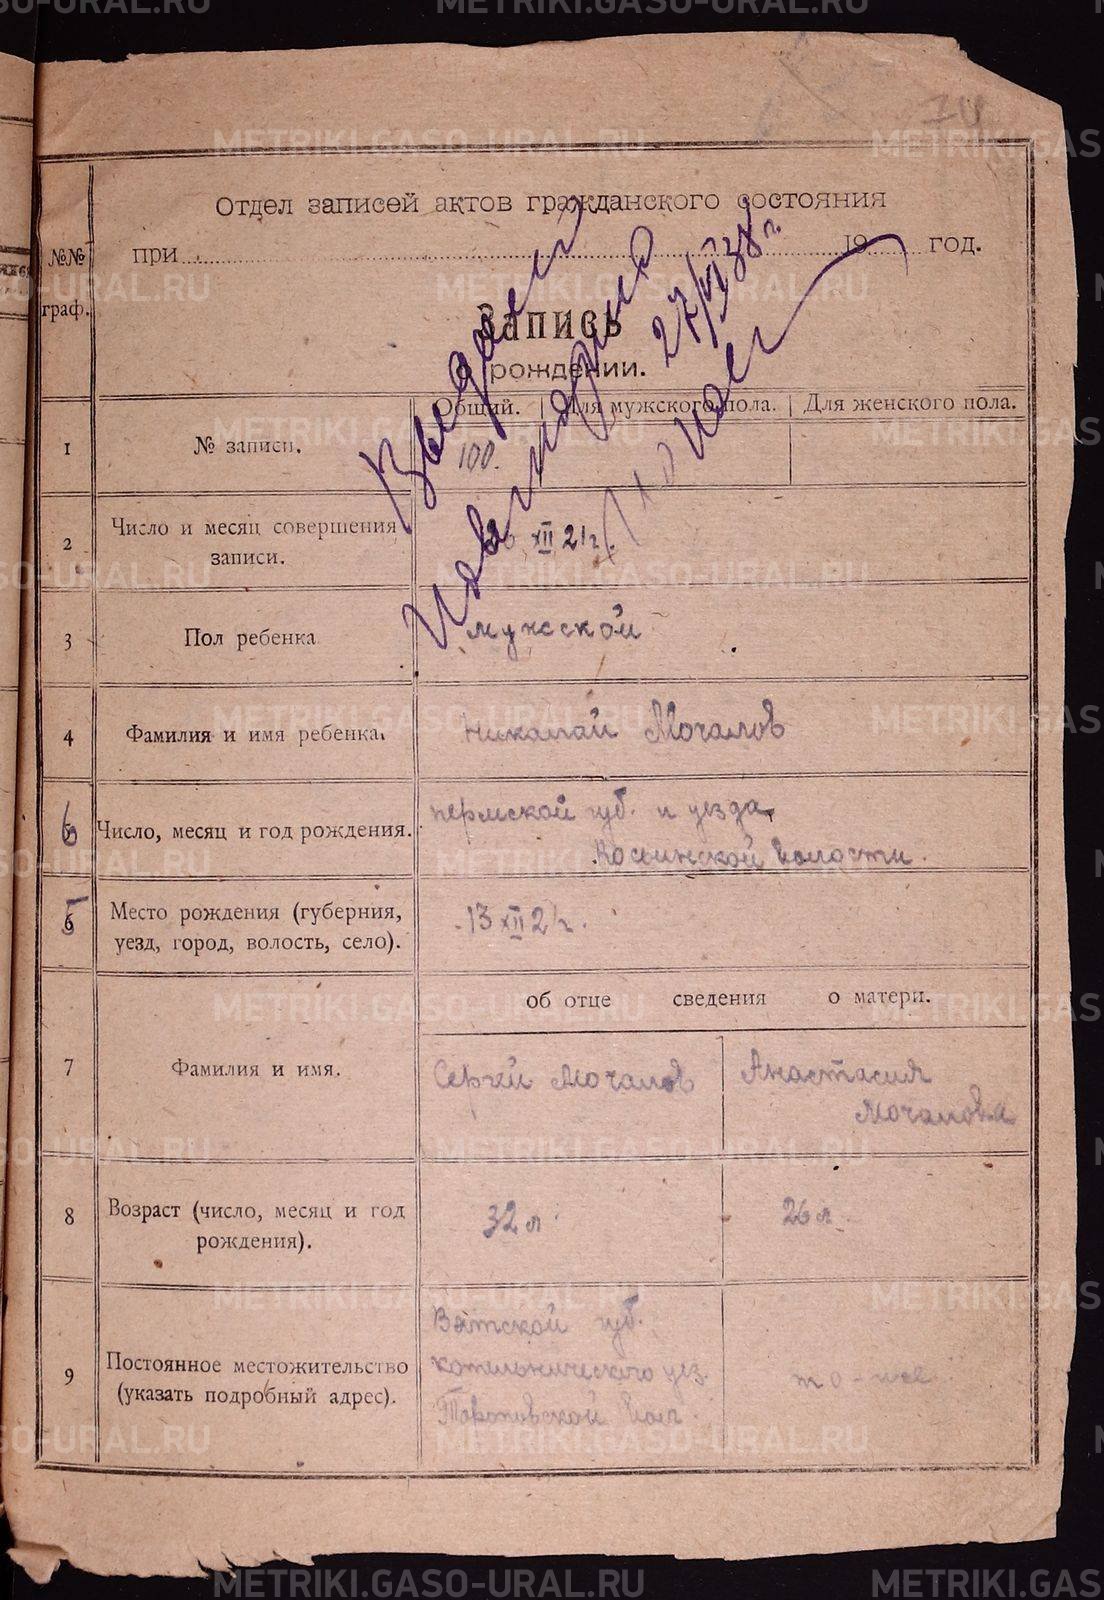 Отдел записей актов гражданского состояния
при 19 год.
№№ граф.
Запись
о рождении.
Выдано
27/VI 38 г.
Общий. Для мужского пола. Для женского пола.
1 № записи. 100.
2 Число и месяц совершения записи. 26 XII 21 г.
3 Пол ребенка мужской
4 Фамилия и имя ребенка. Николай Мочалов
6 Число, месяц и год рождения. пермской губ. и уезда
волости.
5 Место рождения (губерния, уезд, город, волость, село). 13 XII 21 г.
об отце сведения о матери.
7 Фамилия и имя. Сергей Мочалов Анастасия
Мочалова
8 Возраст (число, месяц и год рождения). 32 л. 26 л.
9 Постоянное местожительство (указать подробный адрес). Вятской губ.
котельнического уез.
вол. то-же
METRIKI.GASO-URAL.RU